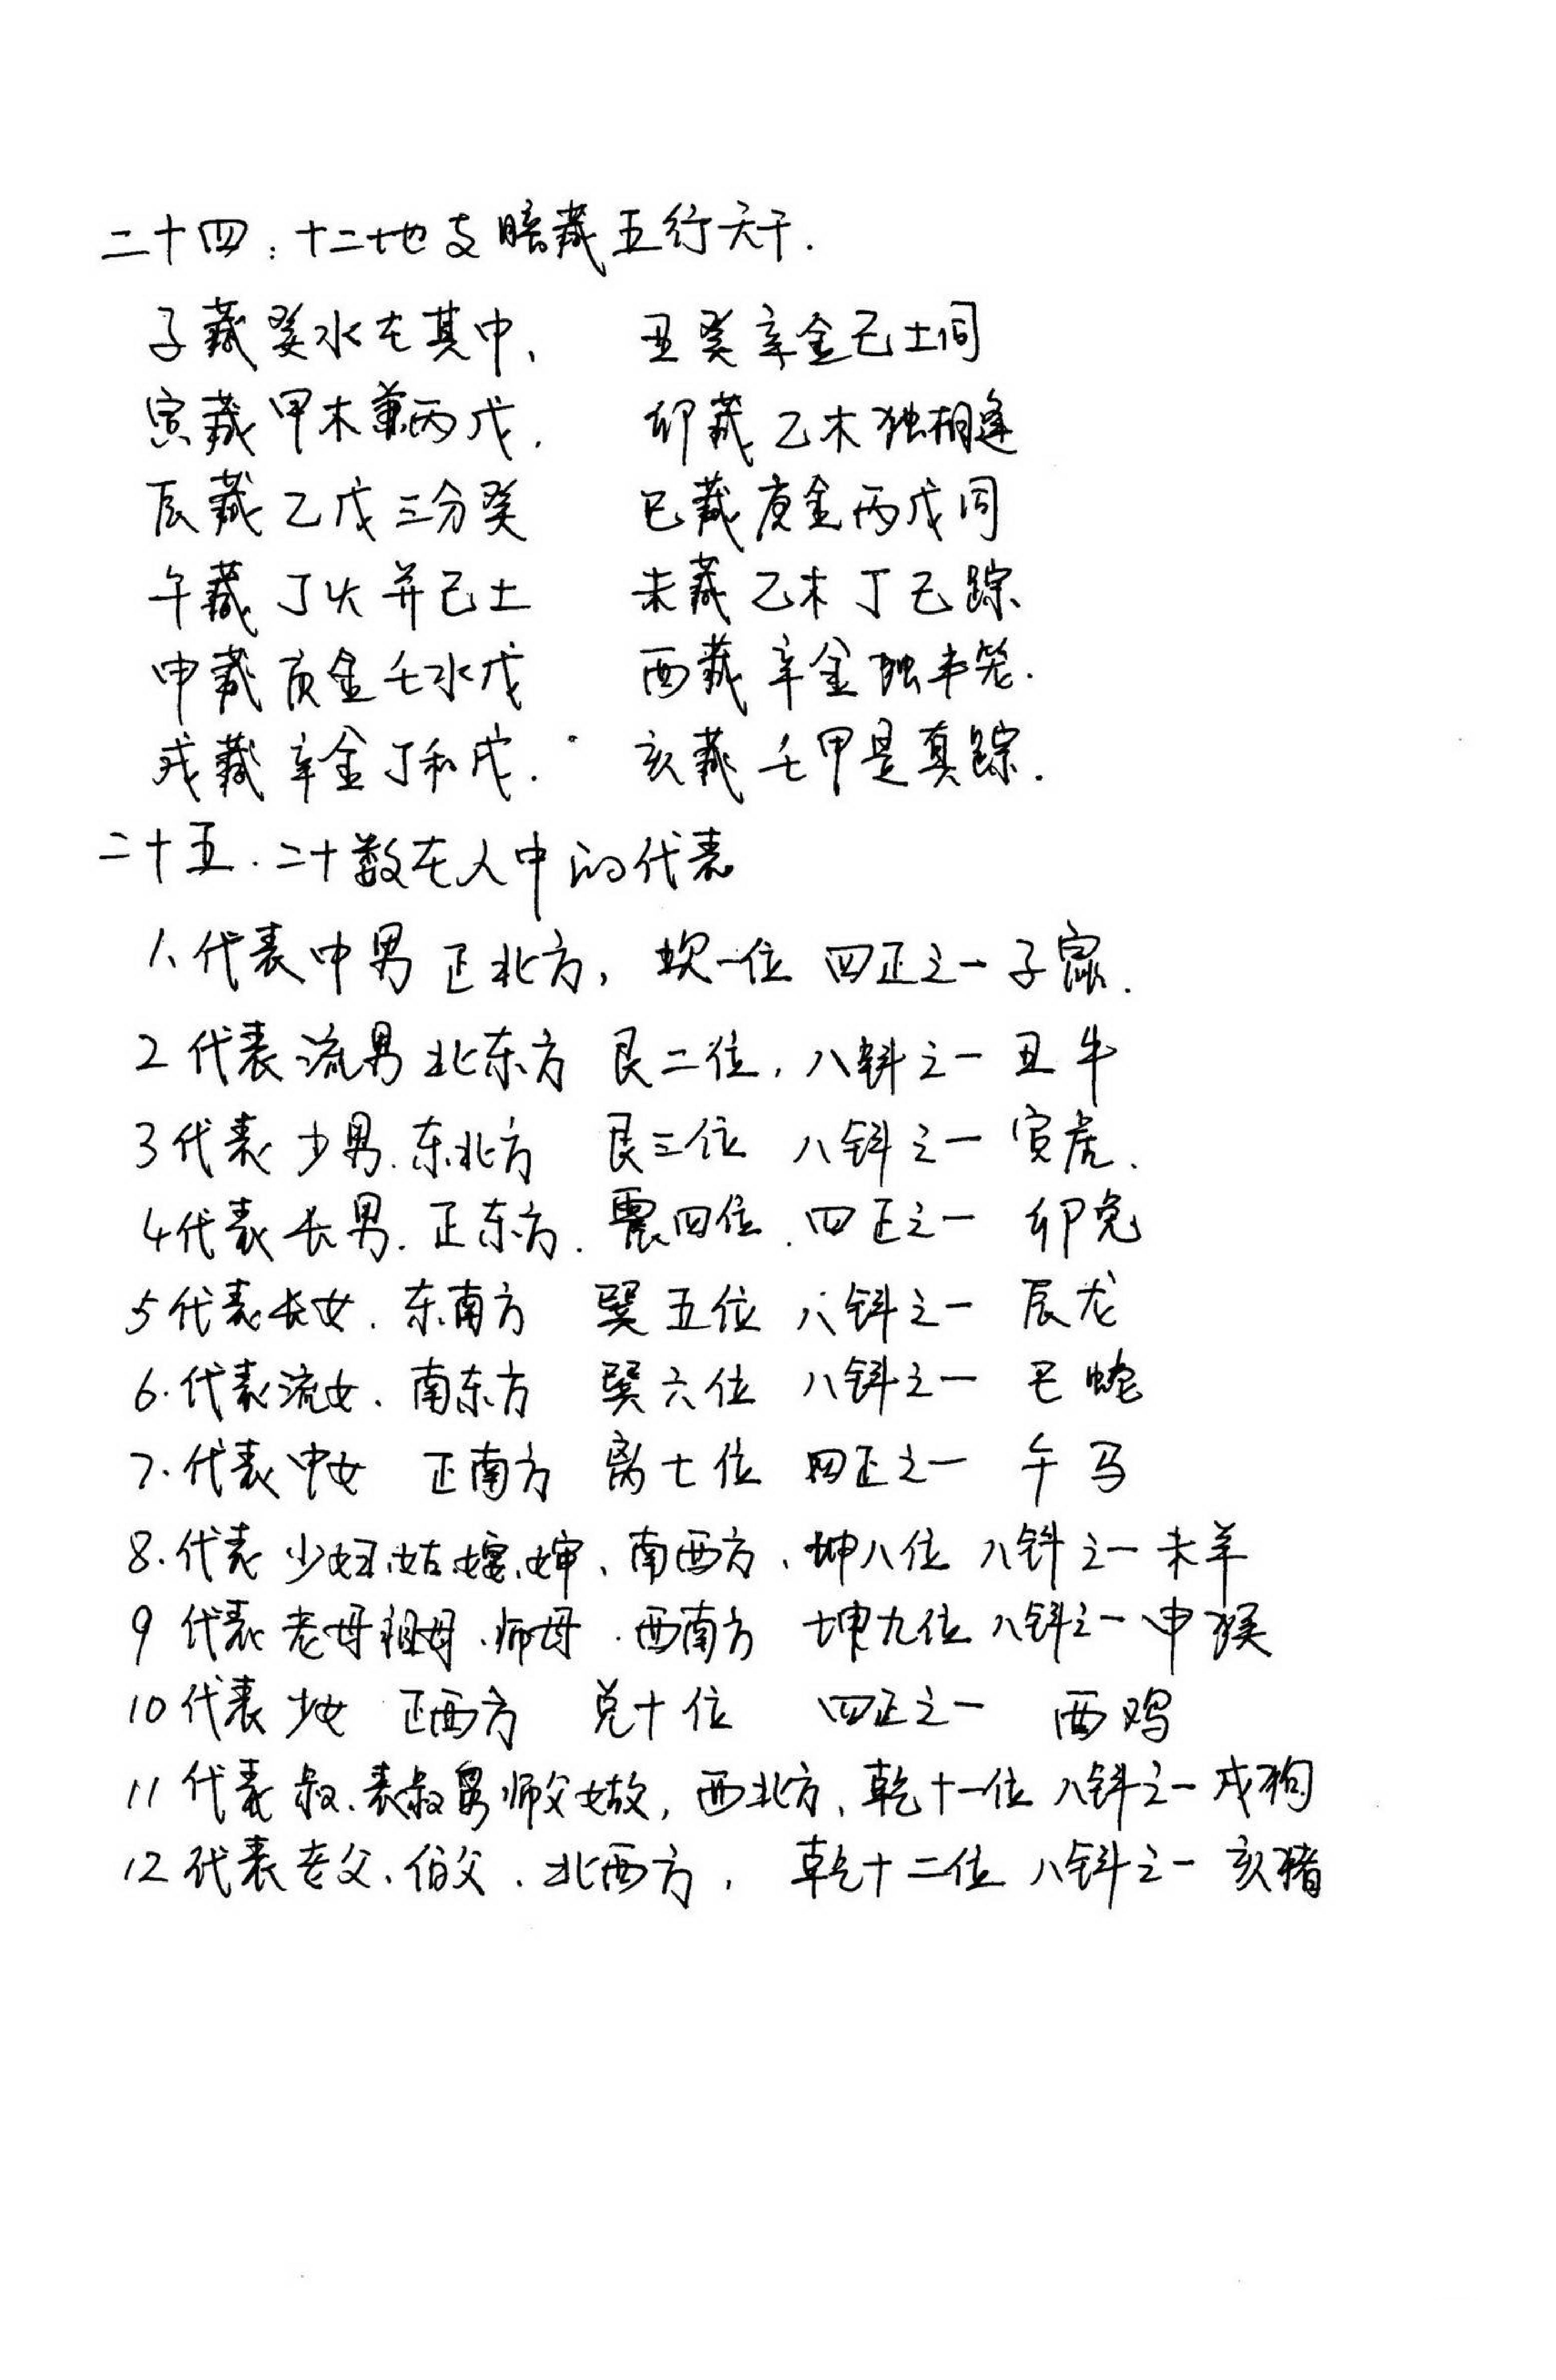 二十四：十二地支暗藏五行天干.
子藏癸水在其中、 丑癸辛金己土同
寅藏甲木兼丙戊. 卯藏乙木独相逢
辰藏乙戊三分癸 巳藏庚金丙戊同
午藏丁火并己土 未藏乙木丁己踪、
申藏庚金壬水戊 酉藏辛金独丰.
戌藏辛金丁和戊. 亥藏壬甲是真踪.
二十五.二十数在人中的代表
1、代表中男正北方, 坎一位 四正之一子鼠.
2代表流男北东方 艮二位, 八斜之一 丑牛
3代表少男.东北方 艮三位 八斜之一 寅虎、
4代表长男.正东方. 震四位.四正之一 卯兔
5代表长女.东南方 巽五位 八斜之一 辰龙
6.代表流女、南东方 巽六位 八斜之一 巳蛇
7.代表中女 正南方 离七位 四正之一 午马
8.代表少妇.姑.嫂.婶、南西方、坤八位 八斜之一未羊
9代表老母祖母.师母.西南方 坤九位八斜之一申猴
10代表少女 正西方 兑十位 四正之一 酉鸡
11代表叔.表叔舅师父, 西北方、乾十一位 八斜之一戌狗
12代表老父、伯父.北西方, 乾十二位 八斜之一亥猪